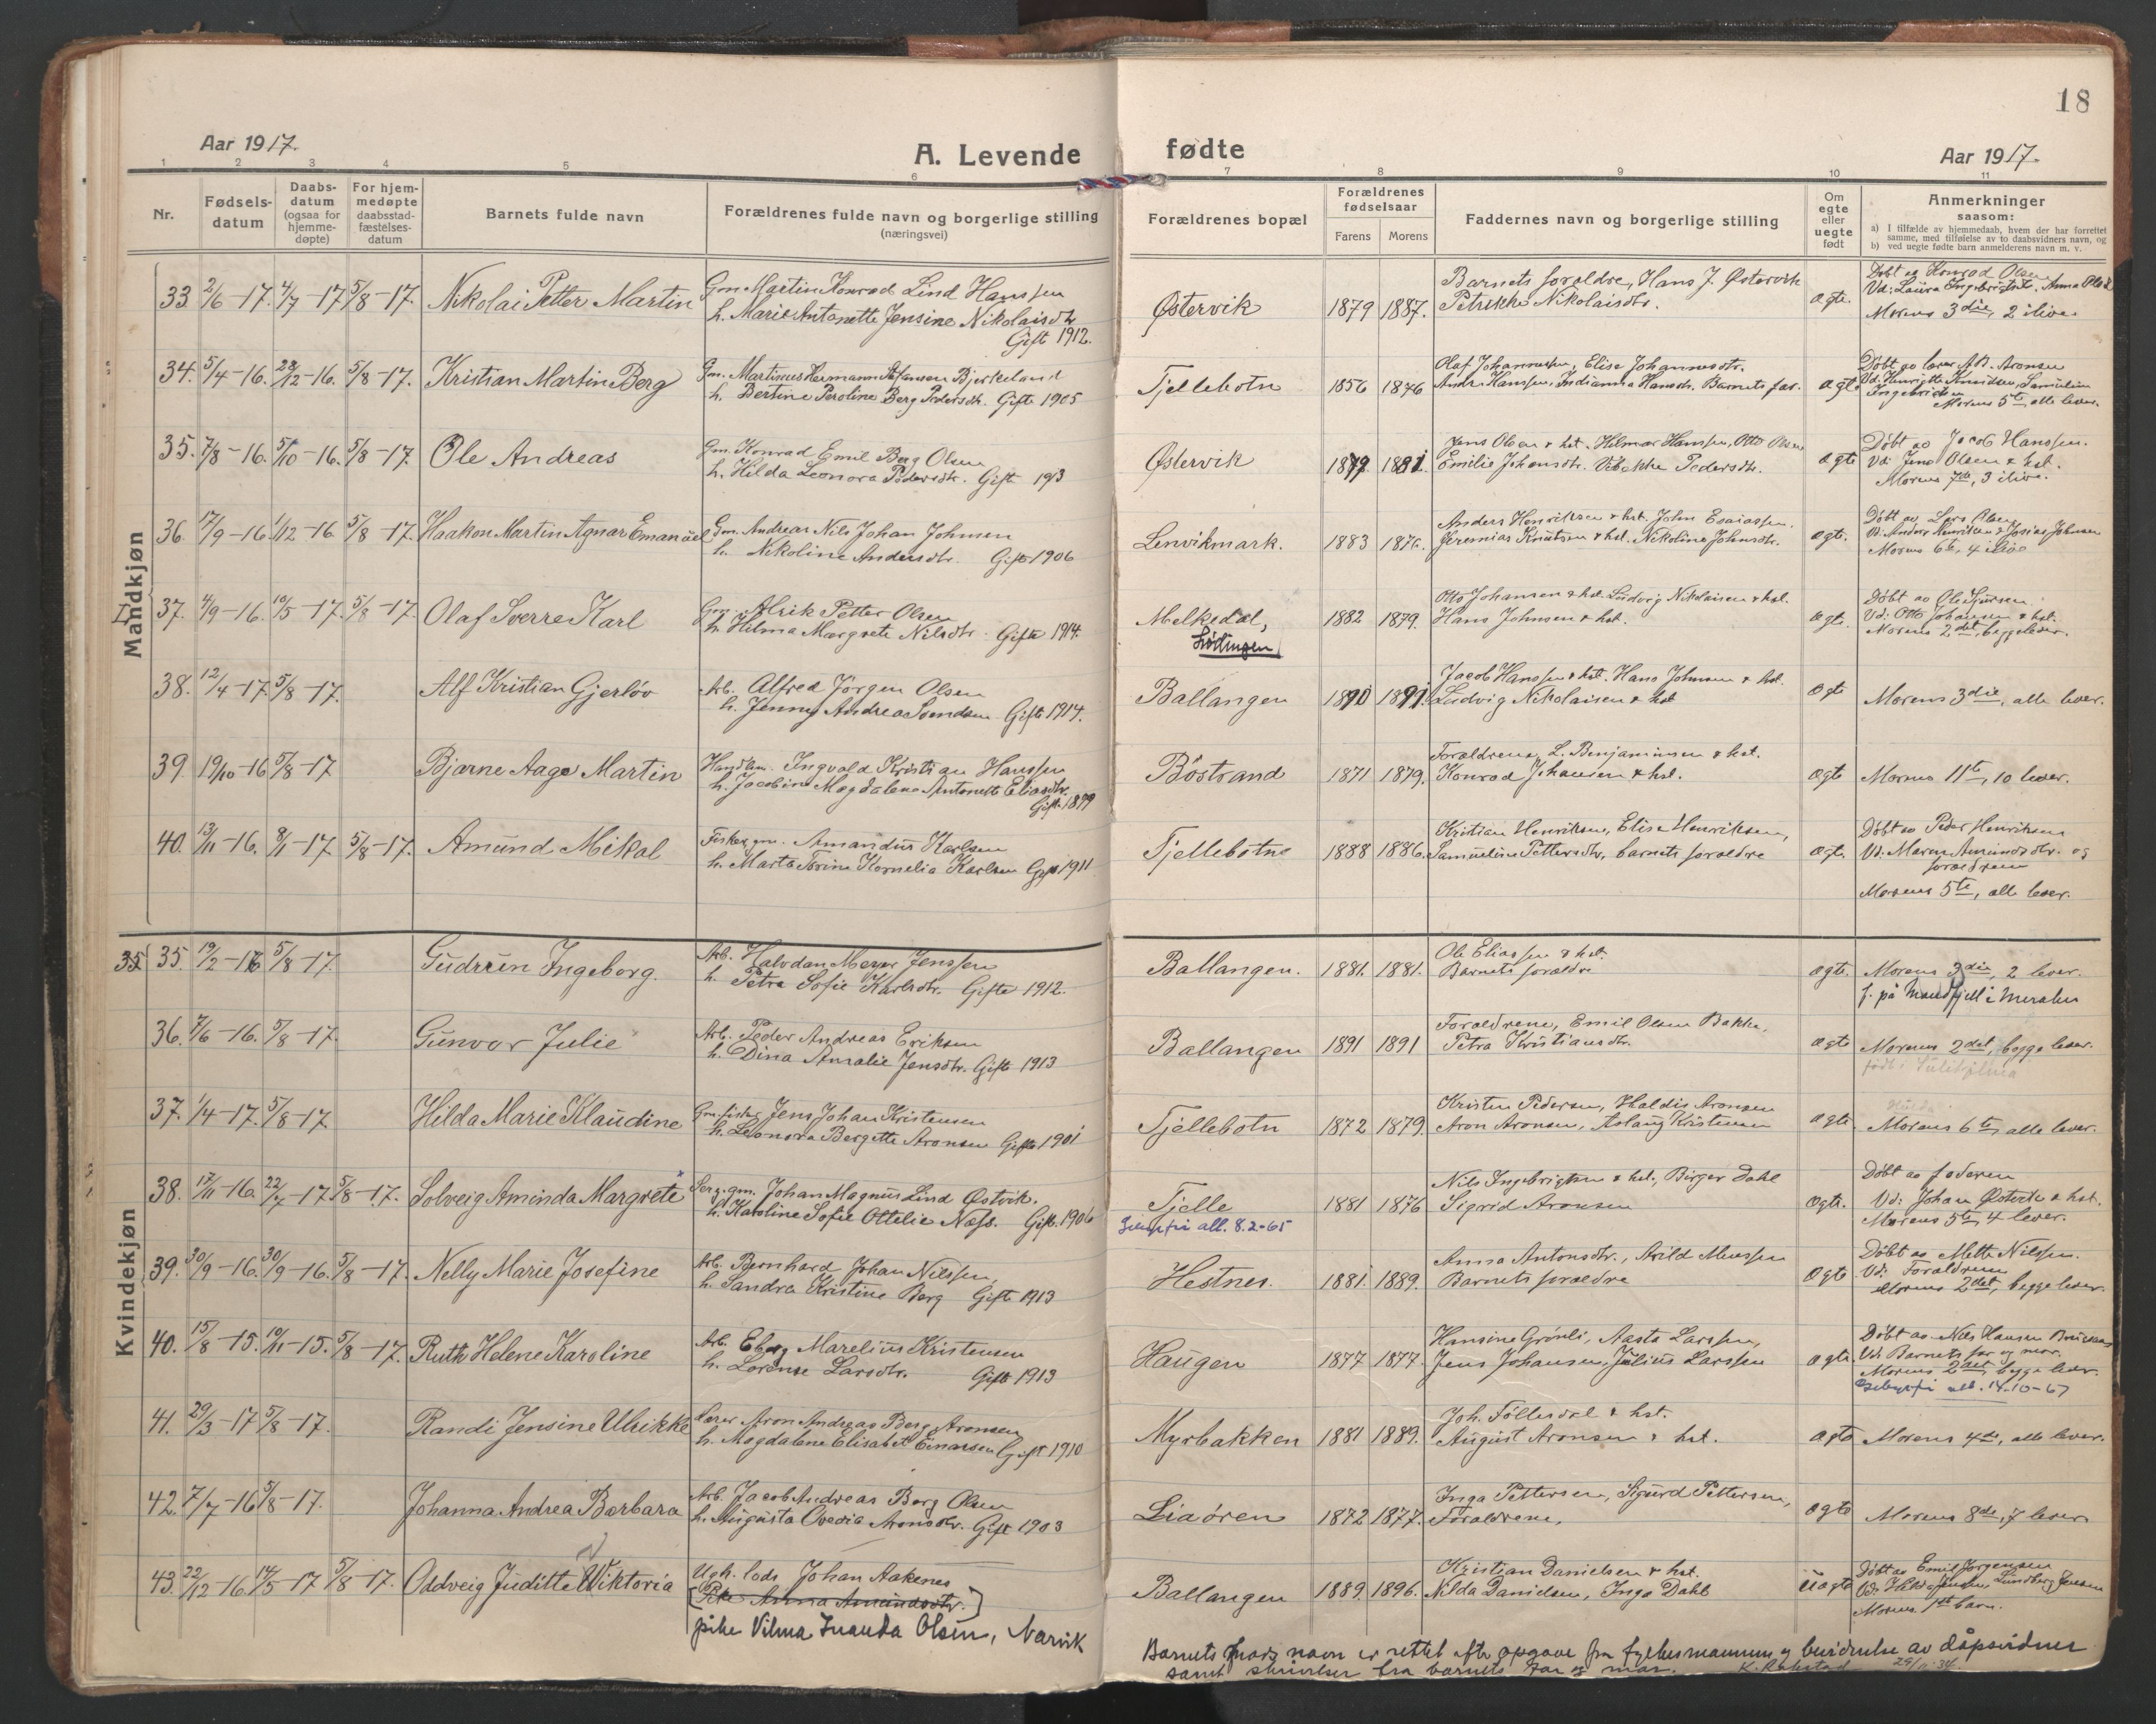 18
Aar 1917.
A. Levende fødte
Aar 1917.
1 2 3 4 5 6 7 8 9 10 11
Nr.
Fødsels-
datum
Daabs-
datum
(ogsaa for
hjemme-
døpte)
For hjem-
medøpte
daabsstad-
fæstelses-
datum
Barnets fulde navn
Forældrenes fulde navn og borgerlige stilling
(næringsvei)
Forældrenes bopæl
Forældrenes
fødselsaar
Farens Morens
Faddernes navn og borgerlige stilling
Om
egte
eller
uegte
født
Anmerkninger
saasom:
a) I tilfælde av hjemmedaab, hvem der har forrettet
samme, med tilføielse av to daabsvidners navn, og
b) ved uegte fødte barn anmelderens navn m. v.
Mandkjøn
33. 2/6-17. 4/7-17 5/8-17. Nikolai Petter Martin
Gm. Martin Konrad Lind Hanssen
h. Marie Antonette Jensine Nikolaisdtr
Gift 1912.
Østervik 1879 1887.
Barnets foraldre, Hans J. Østervik
Petrikke Nikolaisdtr.
ægte.
Døbt av Konrad Olsen
Morens 3die, 2 ilive
34. 5/4-16. 28/12-16. 5/8-17. Kristian Martin Berg
Gm. Martinus Hermann Bjerkeland
h. Bertine Peroline Berg Pedersdtr. Gifte 1905
Tjellebotn 1856 1876
Olaf Johannessen, Elise Johannesdtr.
Hanssen, Indianna Hansdtr. Barnets far.
ægte
Døbt av lærer A.B. Aronsen
Vd: Henrigtte Knudsen, Samuline
Ingebrigtsen
Morens 5te, alle lever.
35. 7/8-16. 5/10-16. 5/8-17. Ole Andreas
Gm. Konrad Emil Berg Olsen
h. Hilda Leonora Pedersdtr. Gift 1913
Østervik 1879 1881.
Jens Olsen & hst. Hilmar Hanssen, Otto Olsen
Emilie Johansdtr. Vibekke Pedersdtr.
ægte
Døbt av Jacob Hanssen.
Vd: Jens Olsen & hst.
Morens 7de, 3 ilive.
36. 17/9-16. 1/12-16 5/8-17. Haakon Martin Agnar Emanuel
Gm. Andreas Nils Johan Johnsen
h. Nikoline Andersdtr. Gift 1906
Lenvikmark. 1883 1876.
Anders Henriksen & hst. John Esaiassen.
Jeremias Knutsen & hst. Nikoline Johnsdtr.
ægte.
Døbt av Lars Olsen
Vd: Anders Henriksen & Josias Johnsen
Morens 6te, 4 ilive
37. 4/9-16. 10/5-17. 5/8-17. Olaf Sverre Karl
Gm. Alrik Petter Olsen
h. Hilma Margrete Nilsdtr. Gifte 1914.
Melkedal,
Lødingen
1882 1879.
Otto Johansen & hst. Ludvig Nikolaisen & hst.
Hans Johnsen & hst.
ægte.
Døbt av Ole Sjursen
Vd: Otto Johansen & hst.
Morens 2det, begge lever.
38. 12/4-17. 5/8-17. Alf Kristian Gjerløv
Arb. Alfred Jørgen Olsen
h. Jenny Andrea Svendsen Gift 1914.
Ballangen 1890 1891.
Jacob Hanssen & hst. Hans Johnsen & hst.
Ludvig Nikolaisen & hst
ægte
Morens 3die, alle lever.
39. 19/10-16 5/8-17 Bjarne Aage Martin
Handlm. Ingvald Kristian Hanssen
h. Jacobine Magdalena Antonette Eliasdtr.
Gift 1899
Bøstrand 1871 1879.
Foraldrene, L. Benjaminsen & hst.
Konrad Johansen & hst.
ægte
Morens 11te, 10 lever.
40. 13/11-16. 8/1-17. 5/8-17. Amund Mikal
Fisker, gm. Amandus Karlsen
h. Marta Torine Kornelia Karlsen Gift 1911
Tjellebotn 1888 1886.
Kristian Henriksen, Elise Henriksen,
Samueline Pettersdtr, barnets foraldre
ægte.
Døbt av Peder Henriksen
Vd: Maren Amundsdtr. og
foraldrene
Morens 5te, alle lever.
Kvindekjøn
35 35. 19/2-16 5/8-17. Gudrun Ingeborg.
Arb. Halvdan Meyer Jenssen
h. Petra Sofie Karlsdtr. Gifte 1912.
Ballangen. 1881. 1881.
Ole Eliassen & hst.
Barnets foraldre
ægte.
Morens 3die, 2 lever.
36. 7/6-16. 5/8-17. Gunvor Julie
Arb. Peder Andreas Eriksen
h. Dina Amalie Jensdtr. Gift 1913
Ballangen 1891 1891
Foraldrene, Emil Olsen Bakke,
Petra Kristiansdtr.
ægte
Morens 2det, begge lever.
født i Sulitjelma
37. 1/4-17. 5/8-17. Hilda Marie Klaudine
Gm. fisker Jens Johan Kristensen
h. Leonora Bergette Aronsen Gift 1901
Tjellebotn 1872 1879.
Kristen Pedersen, Haldis Aronsen
Aron Aronsen, Aslaug Kristensen
ægte
Morens 6te, alle lever.
38. 17/11-16. 22/7-17 5/8-17. Solveig Aminda Margrete
Serg. gm. Johan Magnus Lind Østvik.
h. Karoline Sofie Ottelie Næss. Gift. 1906
Tjelle 1881 1876
att. 8.2-65
Nils Ingebrigtsen & hst., Birger Dahl
Sigrid Aronsen
ægte.
Døbt av faderen
Vd: Johan Østvik & hst.
Morens 5te, 4 lever.
39. 30/9-16. 30/9-16. 5/8-17. Nelly Marie Josefine
Arb. Bernhard Johan Nilssen,
h. Sandra Kristine Berg Gift 1913
Hestnes. 1881. 1889.
Anna Antonsdtr., Arild Monssen
Barnets foraldre
ægte
Døbt av Mette Nilssen.
Vd: Foraldrene
Morens 2det, begge lever.
40. 15/8-15. 19/11-15. 5/8-17. Ruth Helene Karoline
Arb. Eberg Marelius Kristensen
h. Lorense Larsdtr. Gift 1913
Haugen 1877 1877.
Hansine Grønli, Aasta Larssen,
Jens Johansen, Julius Larssen
ægte.
Døbt av Nils Hansen
Vd: Barnets far og mor.
Morens 2det, begge lever.
att. 14-10-67
41. 29/3-17 5/8-17. Randi Jensine Ulrikke
Lærer Aron Andreas Berg Aronsen
h. Magdalene Elisabet Einarsen Gift 1910
Myrbakken 1881 1889.
Joh. Føllesdal & hst.
August Aronsen & hst.
ægte
Morens 4de, alle lever.
42. 7/7-16 5/8-17. Johanna Andrea Barbara
Arb. Jacob Andreas Berg Olsen
h. Augusta Ovedia Aronsdtr. Gift 1903
Liaøren 1872 1877.
Inga Pettersen, Sigurd Pettersen,
Foraldrene,
ægte
Morens 8de, 7 lever
43. 22/12-16. 14/5-17 5/8-17. Oddveig Juditte Wiktoria
Ugh. lods Johan Aakenes
[Pike Anna Amundsdtr.]
pike Vilma Inanda Olsen, Narvik
Ballangen 1889. 1896.
Kristian Danielsen & hst.
Nilda Danielsen, Inga Dahl
uægte
Døbt av Emil Jørgensen
Morens 1ste barn.
Barnets mors navn er rettet efter opgave fra fylkesmannen og bevidnelse av dåpsvidner
samt skrivelser fra barnets far og mor. K. Rakstad 29/11-34.